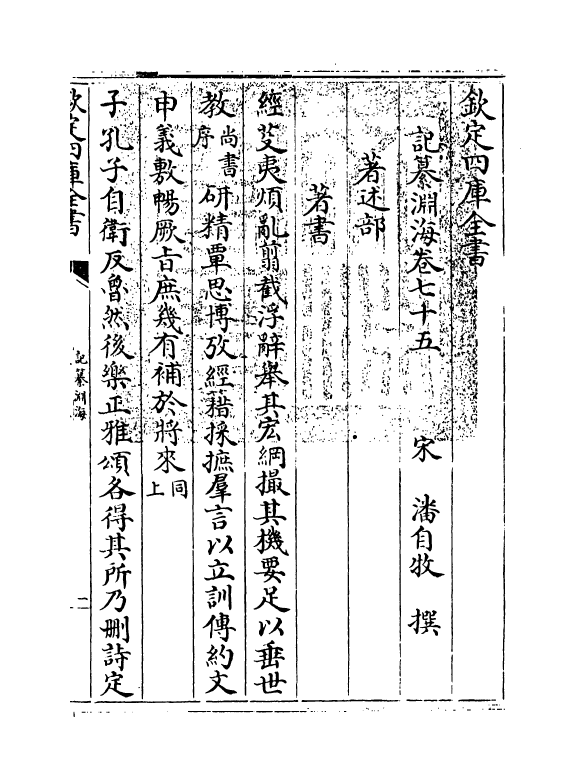 欽定四庫全書
記纂淵海卷七十五　宋　潘自牧　撰
著述部
著書
經芟夷煩亂翦截浮辭舉其宏綱撮其機要足以垂世
教尚書序研精覃思博攷經籍採摭羣言以立訓傳約文
申義敷暢厥旨庶幾有補於將來同上
子孔子自衛反魯然後樂正雅頌各得其所乃刪詩定
欽定四庫全書
記纂淵海